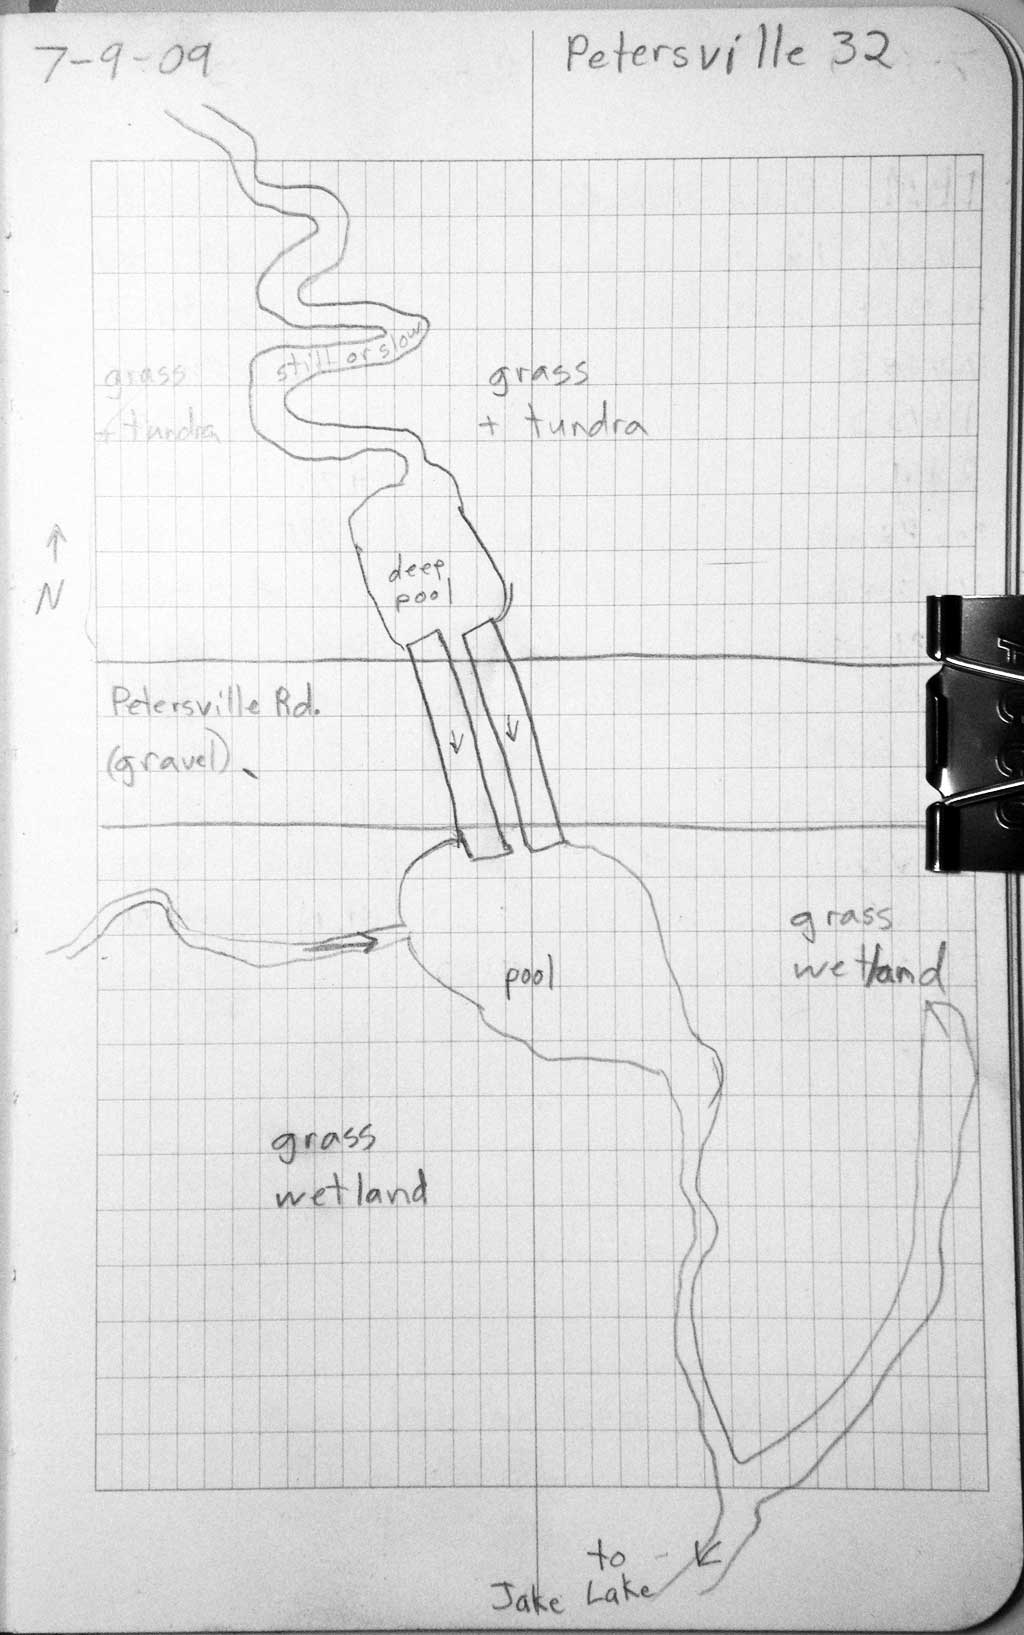 7-9-09
Petersville 32
still or slow
grass
+ tundra
grass
+ tundra
N
deep
pool
Petersville Rd.
(gravel)
grass
wetland
pool
grass
wetland
to
Jake Lake
ACCO